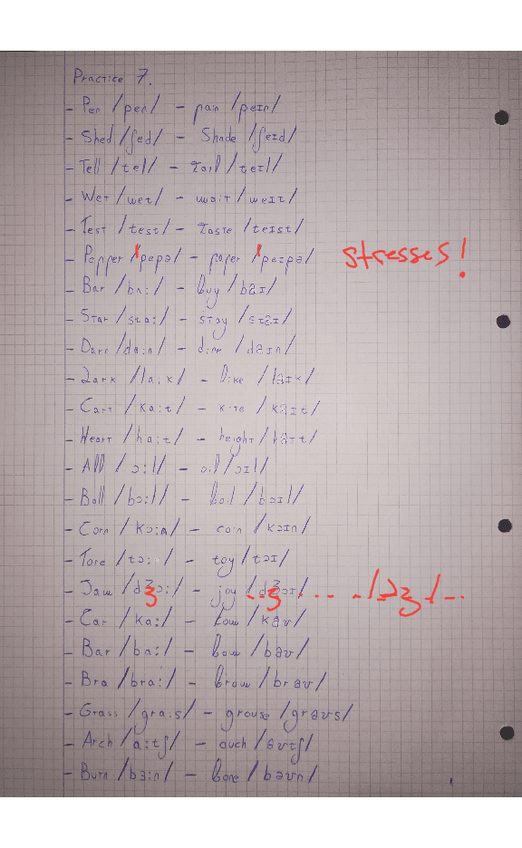 Practice 7.
- Pen /pen/ - pain /peɪn/
- Shed /ʃed/ - Shade /ʃeɪd/
- Tell /tel/ - tail /teɪl/
- Wet /wet/ - wait /weɪt/
- Test /test/ - taste /teɪst/
- Pepper /ˈpepə/ - paper /ˈpeɪpə/ stresses!
- Bar /ba:/ - buy /baɪ/
- Star /sta:/ - stay /staɪ/
- Darn /da:n/ - dine /daɪn/
- Lark /la:k/ - like /laɪk/
- Cart /ka:t/ - kite /kaɪt/
- Heart /ha:t/ - height /haɪt/
- All /ɔ:l/ - oil /ɔɪl/
- Ball /bɔ:l/ - boil /bɔɪl/
- Corn /kɔ:n/ - coin /kɔɪn/
- Tore /tɔ:/ - toy /tɔɪ/
- Jaw /dʒɔ:/ - joy /dʒɔɪ/
- Car /ka:/ - kow /kaʊ/
- Bar /ba:/ - bow /baʊ/
- Bra /bra:/ - brow /braʊ/
- Grass /gra:s/ - grouse /graʊs/
- Arch /a:tʃ/ - ouch /aʊtʃ/
- Burn /bɜ:n/ - bone /bəʊn/